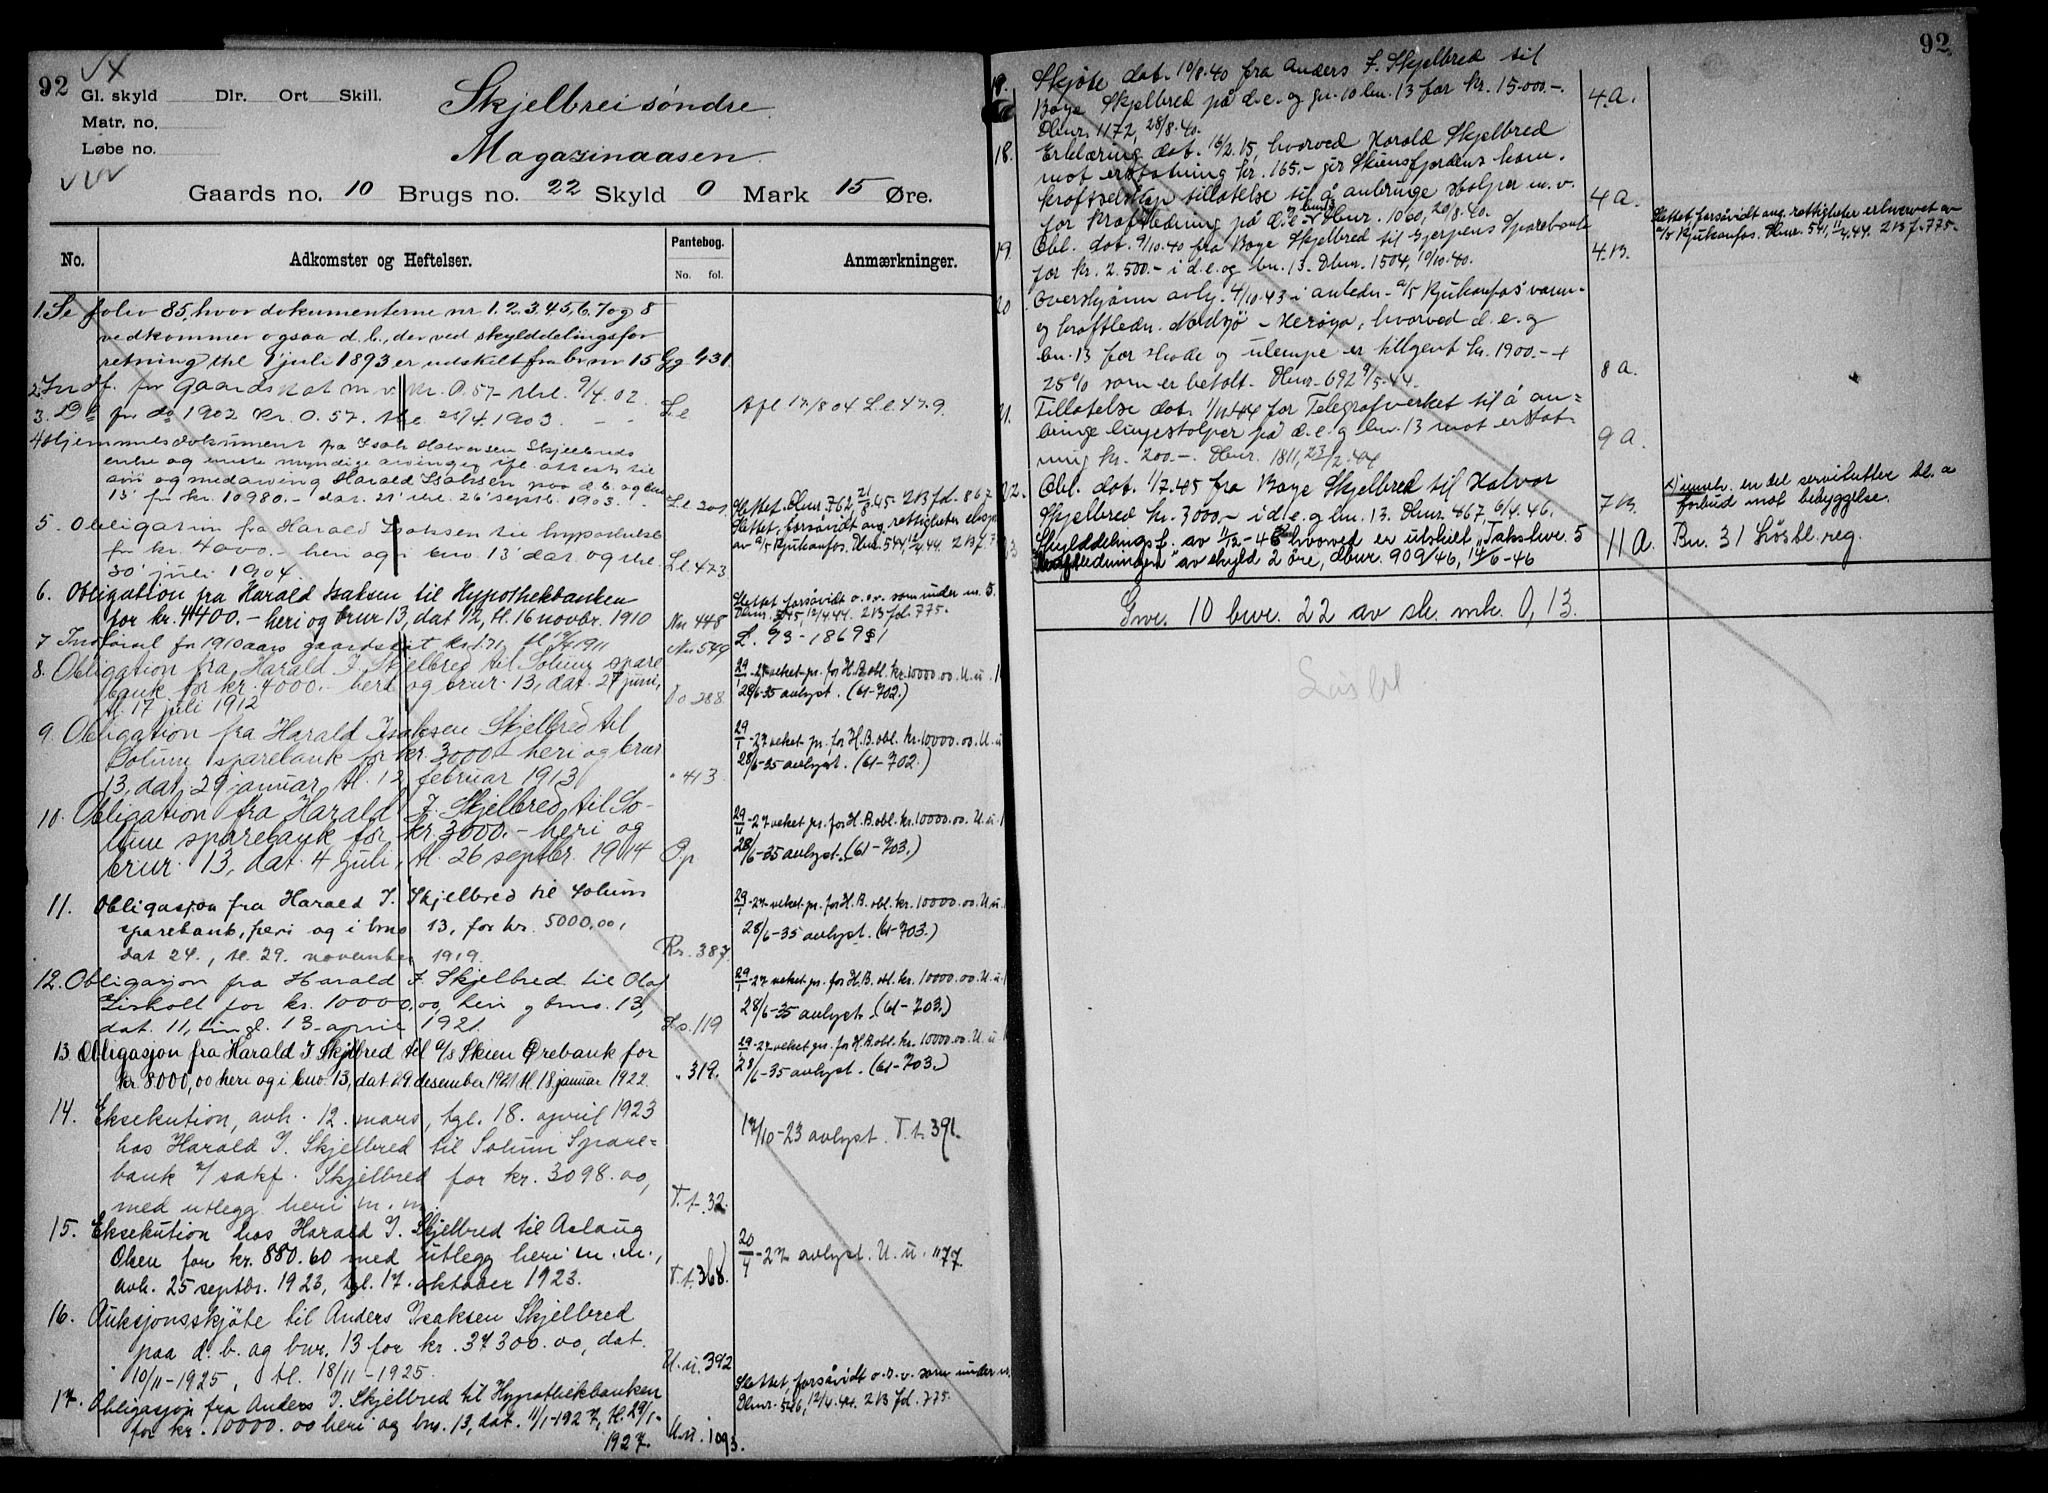 92
Gl. skyld Dlr. Ort Skill.
Matr. no.
Løbe no.
Skjelbrei søndre
Magasinaasen
Gaards no. 10 Brugs no. 22 Skyld 0 Mark 15 Øre.
No. Adkomster og Heftelser. Pantebog. No. fol. Anmærkninger.
1. Se folio 85, hvor dokumenterne nr 1. 2. 3. 4. 5. 6. 7 og 8
vedkommer ogsaa d. b., der ved skylddelingsfor
retning thl 1 juli 1893 er udskilt fra br. nr 15 Gg 431.
2. Indf. for gaardskat m. v. Kr. 0.57 - thl. 9/4. 02.
3. for do 1902 Kr. 0.57. thl 25/4. 1903. Le Afl 17/8 04 Le 479.
4. Hjemmelsdokument fra Isak Halvorsen Skjelbreds
enke og eneste myndige arvinger ifl. attest til
søn og medarving Harald Isaksen paa d. b. og bno
15 for kr. 10980.- dat. 21 thl. 26 septb. 1903. Le 201 Slettet. Dbnr. 762, 21/8. 45. 2B fol. 867
5. Obligation fra Harald Isaksen til hypothekb.
for kr. 4000.- heri og i bno 13 dat og thl.
30 juli 1904. Le 473.
Slettet, forsåvidt ang. rettigheter eksp.
av A/S Rjukanfos. Dbnr. 544, 12/4. 44. 2B f. 7
6. Obligation fra Harald Isaksen til Hypothekbanken
for kr. 4400.- heri og brur 13, dat 12, tl. 16 novbr. 1910 Nn 448
Slettet, forsåvidt o.s.v. som under nr. 5.
Dbnr. 545, 12/4. 44. 2B fol. 775.
7 for 1910 aars gaardskat kr 1.71 1911 Nn 549 L. 93 - 1869
8. Obligation fra Harald I. Skjelbred til Solum spare
bank for kr. 4000.- heri og brur. 13, dat. 27 juni,
tl. 17 juli 1912 Oo 288.
29/1-27 veket pr. for H.B. obl. kr. 10000.00. U. u. 1
28/6-35 avlyst. (61-702.)
9. Obligation fra Harald Isaksen Skjelbred til
Solum sparebank for kr. 3000- heri og brur
13, dat. 29 januar, tl. 12 februar 1913 " 413
29/1-27 veket pr. for H.B. obl. kr. 10000.00. U. u
28/6-35 avlyst. (61-702.)
10. Obligation fra Harald I. Skjelbred til So-
lum sparebank for kr. 3000.- heri og
brur. 13, dat. 4 juli, tl. 26 septbr. 1914 Pp.
29/1-27 veket pr. for H.B. obl. kr. 10000.00. U. u. 1
28/6-35 avlyst. (61-703.)
11. Obligasjon fra Harald I. Skjelbred til Solum
sparebank, heri og i bno 13, for kr. 5000,00,
dat 24., tl. 29. november 1919. Rr. 387.
29/1-27 veket pr. for H.B. obl. kr. 10000.00. U. u.
28/6-35 avlyst. (61-703.)
12. Obligasjon fra Harald I Skjelbred til Olaf
Liskolt for kr. 10000,00, heri og bno. 13,
dat. 11, tingl. 13 april 1921. Ss. 119
29/1-27 veket pr. for H.B. obl. kr. 10000.00. U. u. 1
28/6-35 avlyst. (61-703.)
13. Obligasjon fra Harald I Skjelbred til A/S Skien Ørebank for
kr 8000,00 heri og i bno 13, dat 29 desember 1921 tl. 18 januar 1922. " 319.
29/1-27 veket pr. for H.B. obl. kr. 10000.00. U. u.
28/6-35 avlyst. (61-703.)
14. Eksekution, avh. 12. mars, tgl. 18. april 1923
hos Harald I. Skjelbred til Solum Spare=
bank v/ sakf. Skjelbred for kr. 3098.00,
med utlegg heri m. m. T. t. 32.
17/10-23 avlyst. T. t. 391.
15. Eksekution hos Harald I. Skjelbred til Aslaug
Olsen for kr. 880.60 med utlegg heri m. m.,
avh. 25 septbr. 1923, tgl. 17. oktober 1923. T. t. 368.
20/4-27 avlyst. U. u. 1177.
16. Auksjonsskjøte til Anders Isaksen Skjelbred
paa d. b. og bnr. 13 for kr. 37300.00, dat.
10/11-1925, tl. 18/11-1925. U. u. 392
17. Obligasjon fra Anders I. Skjelbred til Hypothekbanken
for kr. 10000.00 heri og bno. 13, dat. 11/1-1927, tl. 29/1-
1927. U. u. 1093.
Slettet, forsåvidt o.s.v. som under nr.
Dbnr. 546, 12/4. 44. 2B fol. 775.
92
Skjøte dat. 10/8. 40 fra Anders I. Skjelbred til
Boye Skjelbred på d. e. og gn. 10 bn. 13 for kr. 15.000.-.
Dbnr. 1172, 28/8. 40. 4. A.
18. Erklæring dat. 16/2. 15, hvorved Harald Skjelbred
mot erstatning kr. 165.- gir Skiensfjordens kom.
kraftselskap tillatelse til å anbringe stolper m. v.
for kraftledning på d. e. Dbnr. 1060, 20/8. 40. 4 A.
19. Obl. dat. 9/10. 40 fra Boye Skjelbred til Gjerpens Sparebank
for kr. 2.500.- i d. e. og bn. 13. Dbnr. 1504, 19/10. 40. 4. B.
Slettet forsåvidt ang. rettigheter erhvervet av
A/S Rjukanfos. Dbnr. 541, 11/4. 44. 2B f. 775.
20 Overskjønn avhj. 4/10. 43 i anledn. A/S Rjukanfos vann-
og kraftledn. Mælsjø - Herøya, hvorved d. e. og
bn. 13 for skade og ulempe er tillgent kr. 1900.- +
25% som er betalt. Dbnr. 692 9/5. 44. 8 A.
21. Tillatelse dat. 1/11 44 for Telegrafverket til å an=
bringe linjestolper på d. e. og bn. 13 mot erstat-
ning kr. 200.-. Dbnr. 1811, 23/12. 44 9 A.
22. Obl. dat. 1/7. 45 fra Boye Skjelbred til Halvor
Skjelbred kr. 3000.- i d. e. og bn. 13. Dbnr. 467, 6/4. 46. 7 B.
x) unntn. en del servitutter bl. a
forbud mot bebyggelse.
23 Skylddelingsf. av 1/12-45 hvorved er utskilt "Takstnr. 5
" av skyld 2 øre, dbnr. 909/46, 14/6-46 11 A. Bn. 31 Løsbl. reg.
Gnr. 10 bnr. 22 av sk. mk. 0,13.
Løsbl.